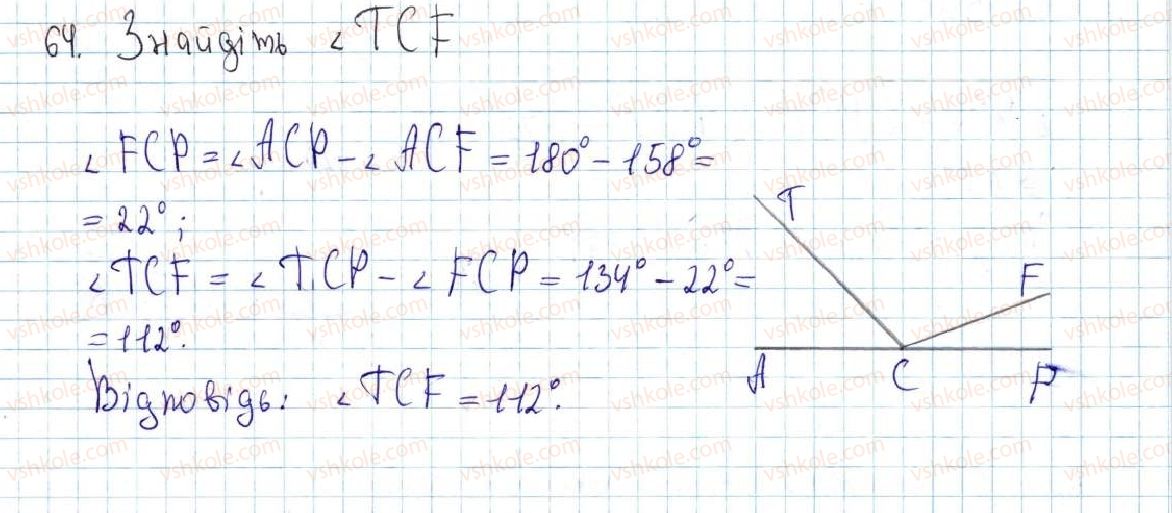 64. Знайдіть ∠TCF
∠FCP = ∠ACP - ∠ACF = 180° - 158° =
= 22°;
∠TCF = ∠TCP - ∠FCP = 134° - 22° =
= 112°.
Відповідь: ∠TCF = 112°.
T
F
A C P
vshkole.com